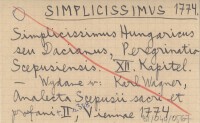 SIMPLICISSIMUS 1774.
Simplicissimus Hungaricus
seu Dacianus, Peregrinatio
Scepusiensis. XII. Kapitel.
— Wydane v: Karl Wagner,
Analecta Scepusii sacri et
profani. II Viennae 1774